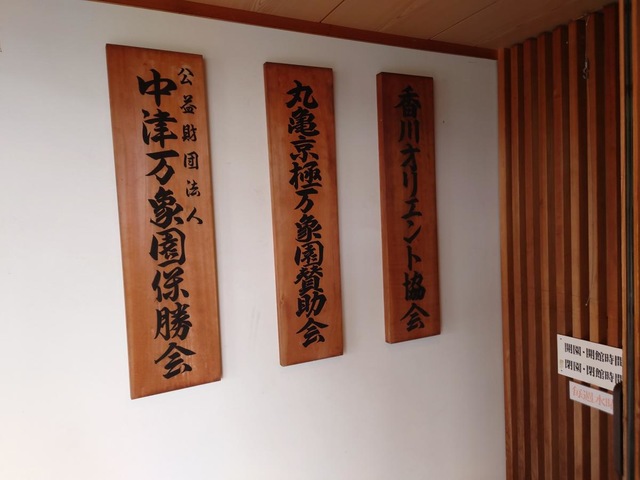 公益財団法人
中津万象園保勝会
丸亀京極万象園賛助会
香川オリエント協会
開園・開館時間
閉園・閉館時間
毎週水